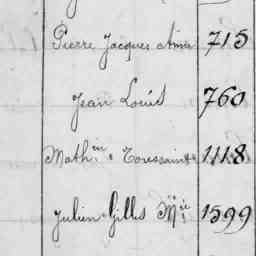 Pierre Jacques Aimé 715
Jean Louis 760
Math.in Toussaint 1118
Julien Gilles M.ie 1599